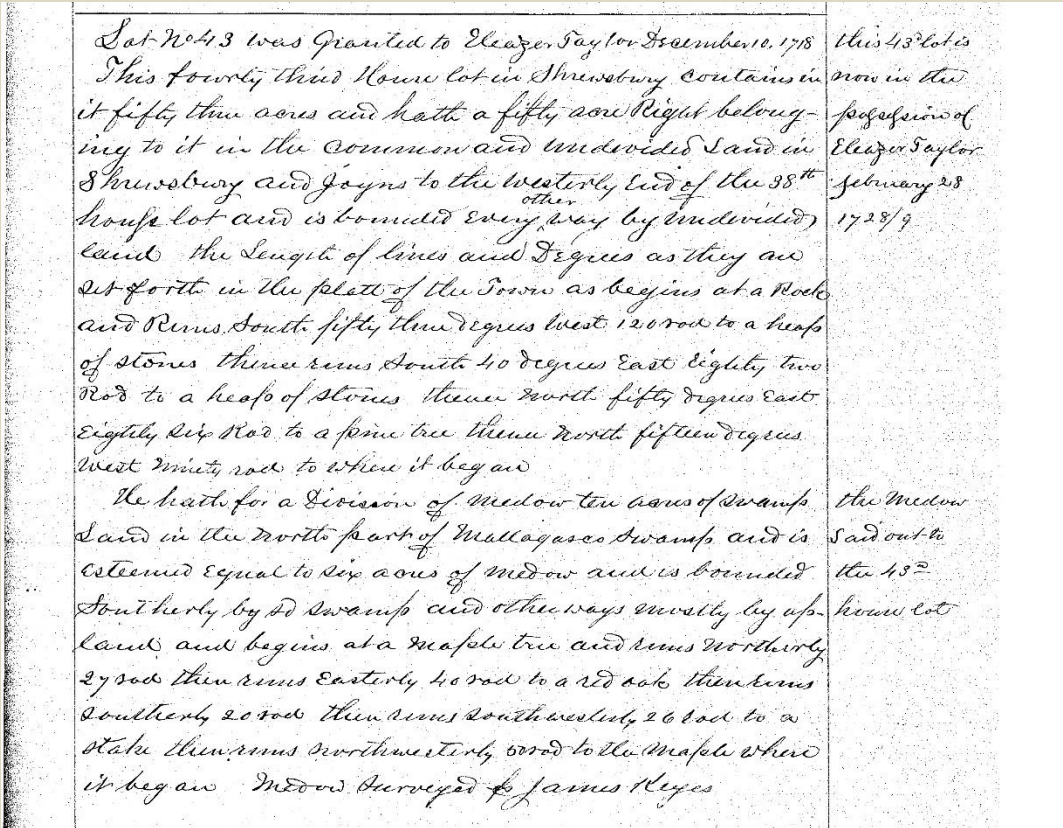 Lot No 43 was Granted to Eleazer Taylor December 10, 1718
This fourty third House lot in Shrewsbury contains in
it fifty three acres and hath a fifty acre Right belong-
ing to it in the common and undevided Land in
Shrewsbury and Joyns to the Westerly End of the 38th
house lot and is bounded Every other way by undevided
land the Length of lines and Degrees as they are
set forth in the platt of the Town as begins at a Rock
and Runs South fifty three degrees West 120 rod to a heap
of stones thence runs South 40 degrees East Eighty two
Rod to a heap of stones thence North fifty degrees East
Eightly six Rod to a pine tree thence North fifteen degrees
West Ninety rod to where it began
He hath for a Division of Medow ten acres of swamp
Land in the North part of Mallagasco Swamp and is
esteemed Equal to six acres of medow and is bounded
Southerly by sd swamp and otherways mostly by up-
land and begins at a Maple tree and runs Northerly
27 rod then runs Easterly 40 rod to a red oak then runs
Southerly 20 rod then runs Southwesterly 26 rod to a
stake then runs northwesterly rod to the Maple where
it began Medow Surveyed James Keyes
this 43d lot is
now in the
possession of
Eleazer Taylor
february 28
1728/9
the Medow
Laid out to
the 43d
house lot